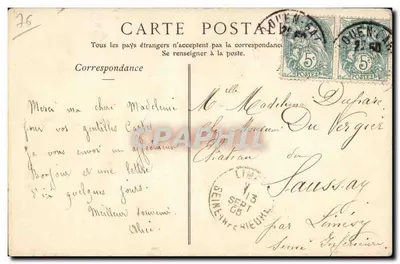 76
CARTE POSTALE
Tous les pays étrangers n'acceptent pas la correspondance
Se renseigner à la poste.
Correspondance
Merci ma chère Madeleine
pour vos gentilles
Je vous envoi un affectueux
Bonjour et une lettre
d'ici quelques jours.
Meilleur souvenir.
Alice
Melle Madeleine
Du Vergier
Château du
Saussay
par Limésy
Seine Inférieure
ROUEN
5c
5c
SEPT
SEINE-INFERIEURE
CARTAPHILIE